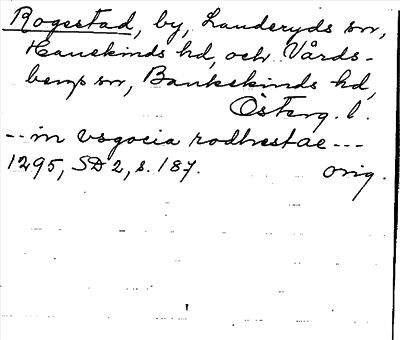 Rogestad, by, Landeryds sn,
Hanekinds hd, och Vårds-
bergs sn, Bankekinds hd,
Österg. l.
-- in vsgocia rodhestae ---
1295, SD 2, s. 187. orig.